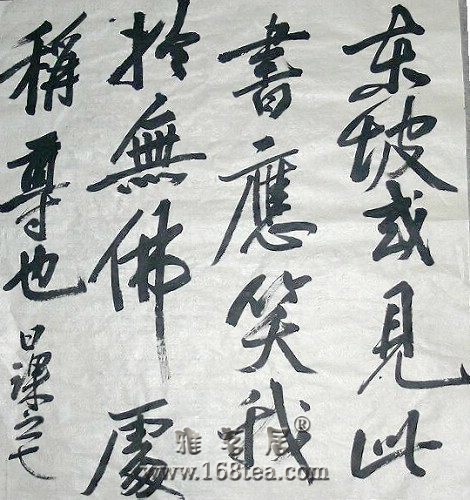 东坡或見此
書應笑我
於無佛處
稱尊也
日課之七
雅茗居®
www.168tea.com